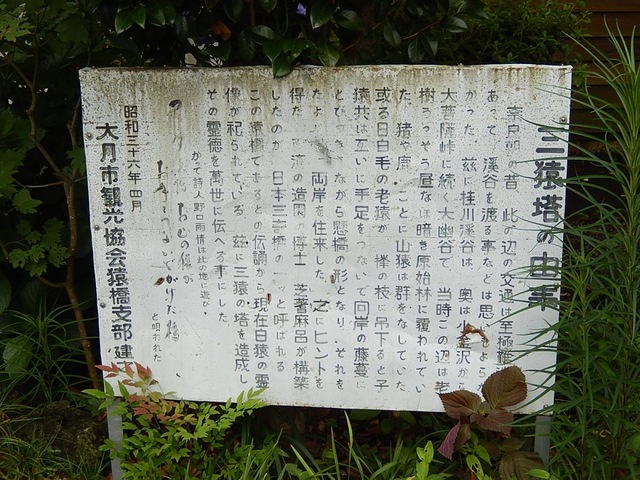 三猿塔の由来
奈良朝の昔 此の辺の交通は至極難
あって 渓谷を渡る事などは思 よら
かった 茲に桂川渓谷は 奥は小金沢から
大菩薩峠に続く大幽谷で 当時この辺は老
樹うっそう昼なほ暗き原始林に覆われてい
た、猪や鹿 ことに山猿は群をなしていた、
或る日白毛の老猿が 欅の枝に吊下ると子
猿共は互いに手足をつないで向岸の藤蔓に
とび ながら懸橋の形となり それを
たよ 両岸を往来した、之にヒントを
得た 済の造園の博士 芝耆麻呂が構築
したのが 日本三奇橋の ッと呼ばれる
この猿橋であるとの伝説から現在白猿の霊
像が祀られている、茲に三猿の塔を造成し
その霊徳を萬世に伝へる事にした
かて詩人野口雨情は此の地に遊び、
と唄われた
昭和三十六年四月
大月市観光協会猿橋支部 建